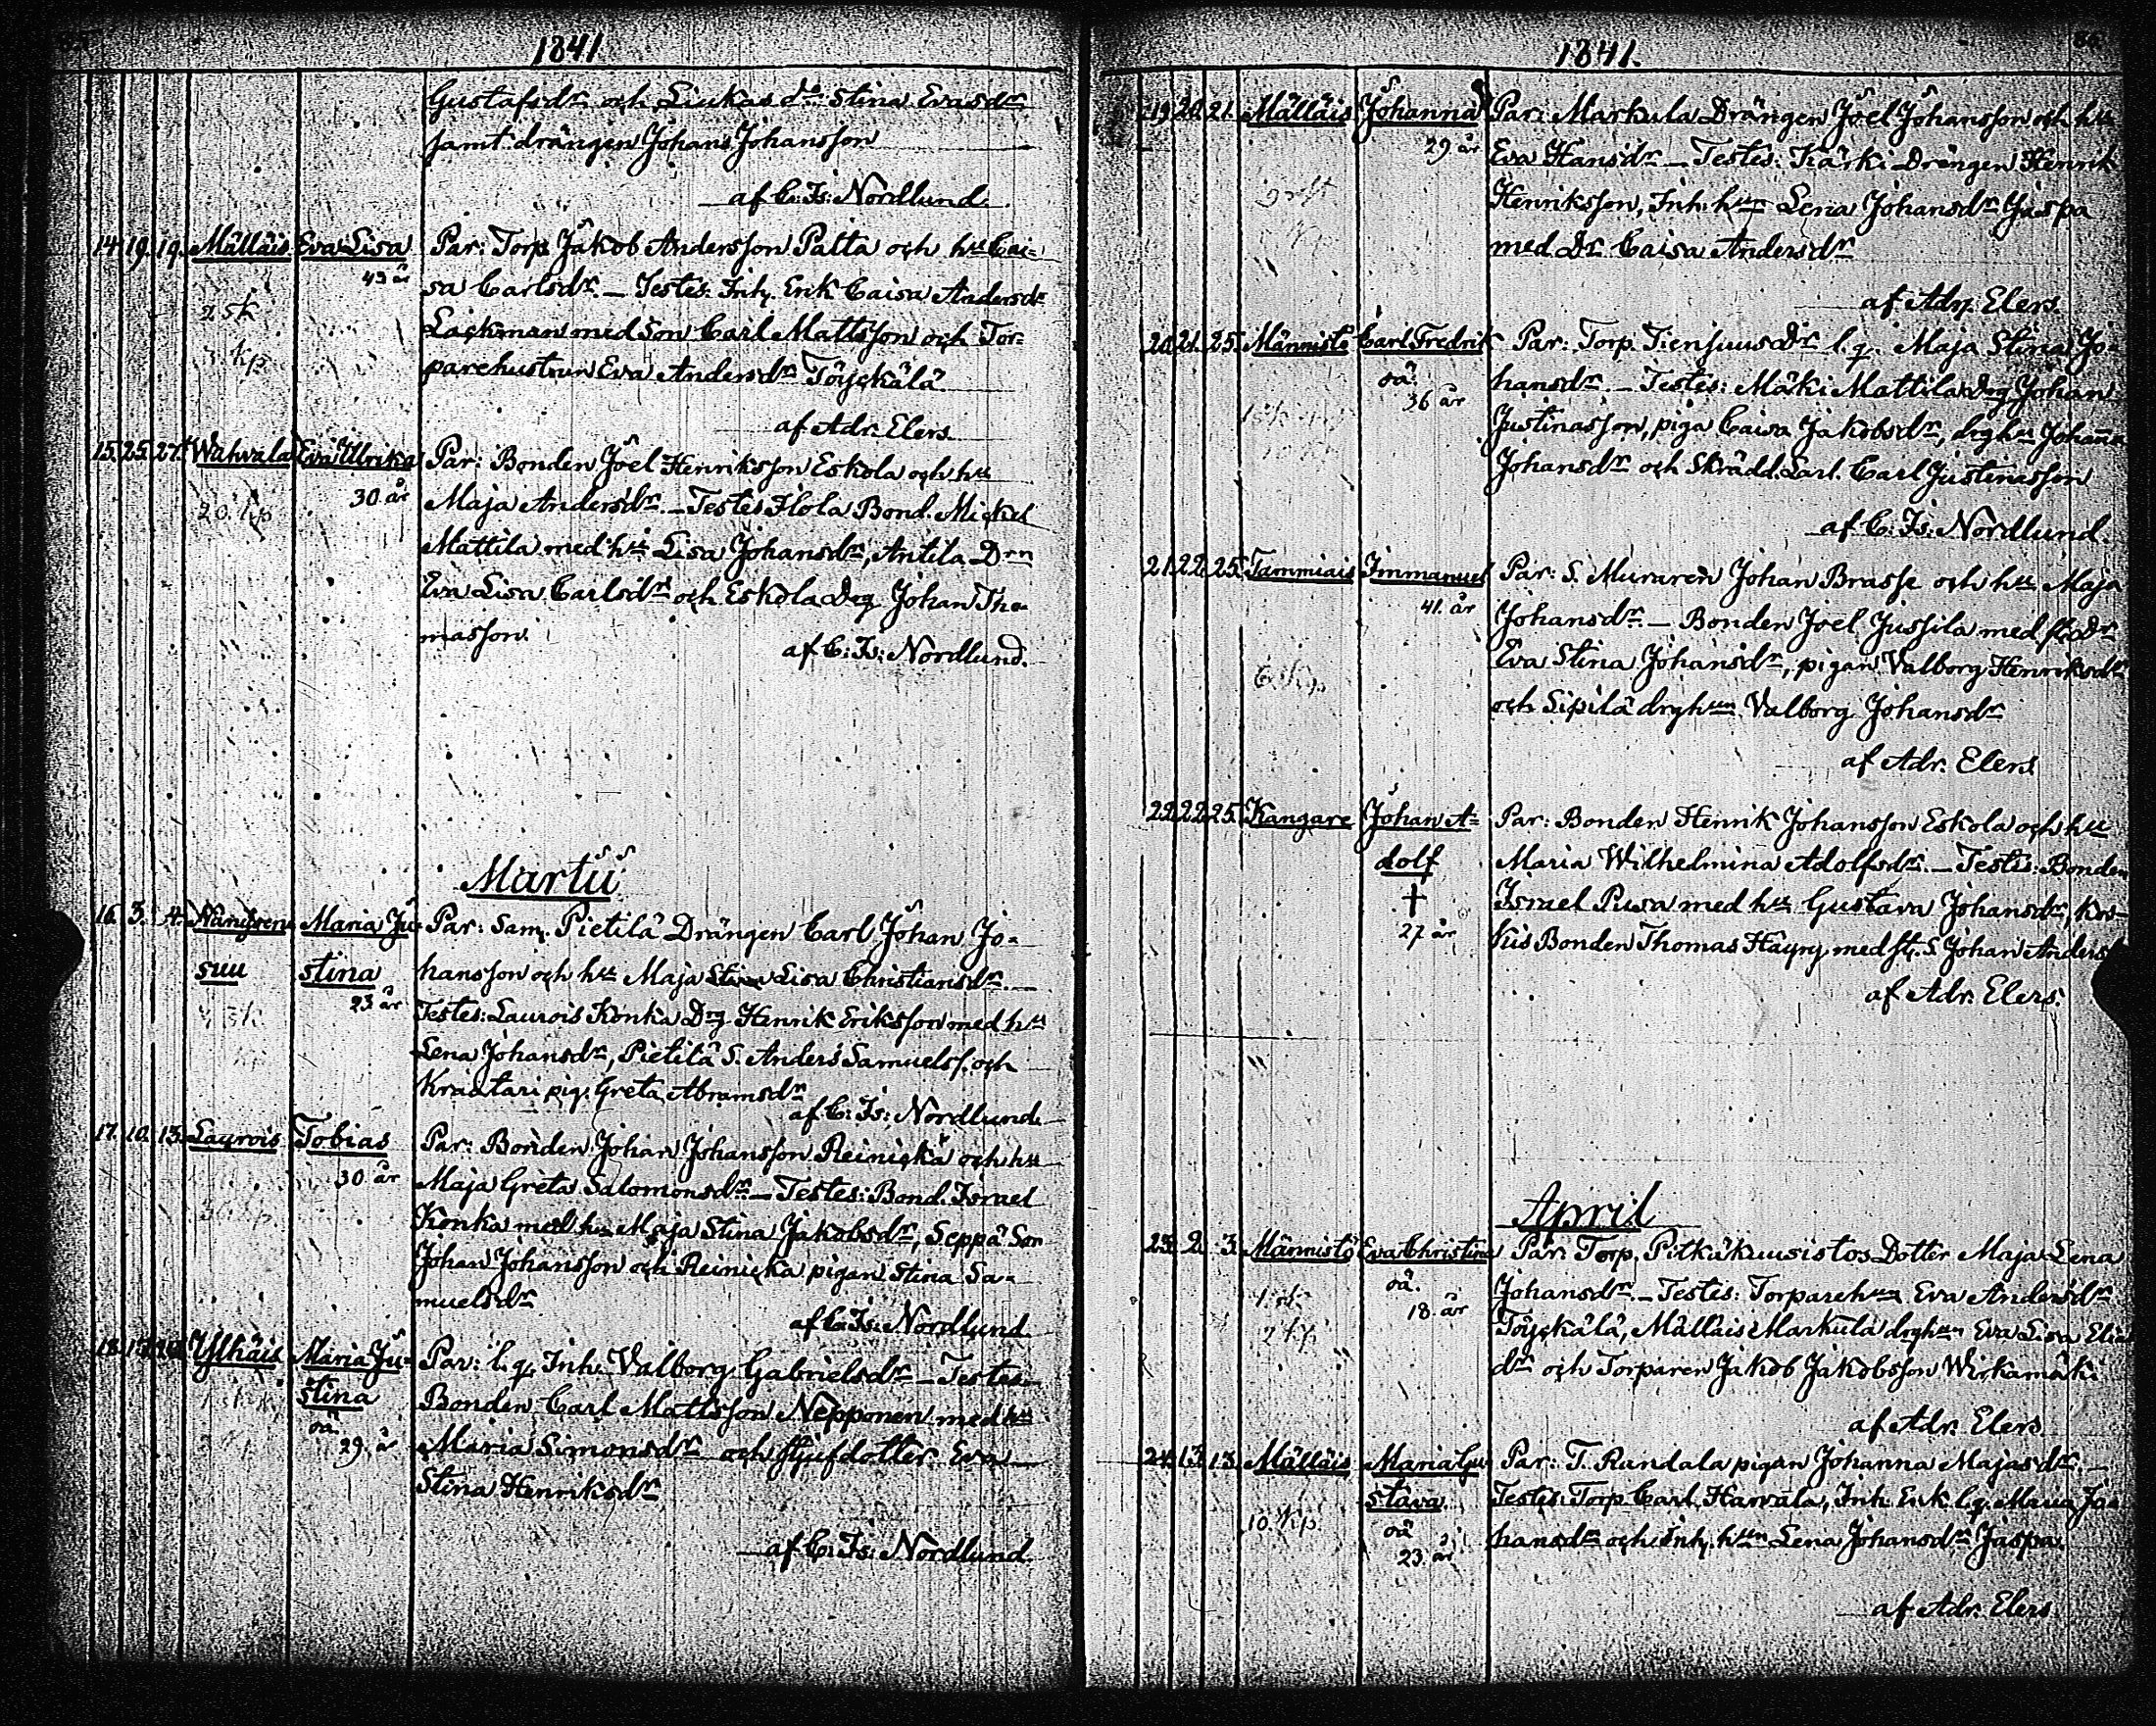 1841
Gustafsdr och Liukas do Stina Evasdr
samt drängen Johans Johansson
af C: Is: Nordlund.
14. 19. 19. Mälläis Eva Lisa Par: Torp. Jakob Andersson Patta och hu Cai-
43 år sa Carlsdr. – Testes: Inh. Enk. Caisa Andersdr
2 sk Lackman med Son Carl Mattsson och Tor-
kp parehustrun Eva Andersdr Töyckälä
af Adr. Elers.
15. 25. 27. Wahvala Eva Ulrika Par: Bonden Joel Henriksson Eskola och hu
20. kp 30 år Maja Andersdr. – Testes Hola Bond. Mickel
Mattila med hu Lisa Johansdr, Antila Drn
Eva Lisa Carlsdr och Eskola Drg Johan Tho-
masson.
af C: Is: Nordlund.
Martii
16. 3. 4. Maria Ju- Par: Sam. Pietilä Drängen Carl Johan Jo-
suu stina hansson och hu Maja Lisa Christiansdr. –
23 år Testes: Laurois Konka Drg Henrik Eriksson med hu
Lena Johansdr, Pietilä S. Anders Samuelss. och
Kraatari pig. Greta Abramsdr
af C: Is: Nordlund.
17. 10. 13. Laurois Tobias Par: Bonden Johan Johansson Reinickä och hu
30 år Maja Greta Salomonsdr. – Testes: Bond. Israel
Konka med hu Maja Stina Jakobsdr, Seppä Son
Johan Johansson och Reinicka pigan Stina Sa-
muelsdr
af C: Is: Nordlund.
18. Ylhäis Maria Ju- Par: l. q. Inh. Valborg Gabrielsdr – Testes
stina Bonden Carl Mattsson Nepponen med hu
oä. 29. år Maria Simonsdr och styfdotter Eva
Stina Henriksdr
af C: Is: Nordlund.
1841.
19. 20. 21. Mälläis Johanna Par: Markula Drängen Joel Johansson och hu
29 år Eva Hansdr – Testes: Kärki Drängen Henrik
Henriksson, Inh. hun Lena Johansdr Jaspa
med Dr Caisa Andersdr
af Adr. Elers.
20. 21. 25. Männistö Carl Fredrik Par: Torp. Tiensuus Dr l. q. Maja Stina Jo-
oä. 36 år hansdr. – Testes: Mäki Mattila Drg Johan
Justinasson, piga Caisa Jakobsdr, drghu Johanna
Johansdr och Skrädd. Lärl. Carl Justinasson
af C: Is: Nordlund.
21. 22. 25. Tammiais Immanuel Par: S. Muraren Johan Brasse och hu Maja
41. år Johansdr. – Bonden Joel Jussila med Dr
Eva Stina Johansdr, pigan Valborg Henriksdr
och Sipilä drghun Valborg Johansdr
af Adr. Elers
22. 22. 25. Kangare Johan A- Par: Bonden Henrik Johansson Eskola och hu
dolf Maria Wilhelmina Adolfsdr. – Testes: Bonden
† Israel Pusa med hu Gustava Johansdr, Kos-
27 år kis Bonden Thomas Häyry med S Johan Anders
af Adr. Elers.
April
23. 2. 3. Männistö Eva Christina Par: Torp. Pitkäkuusistos Dotter Maja Lena
1 sk oä. 18. år Johansdr. – Testes: Torparehun Eva Andersdr
2 kp Töyckälä, Mälläis Markula drghun Eva Lisa Elia
dr och Torparen Jakob Jakobsson Wirkamäki
af Adr. Elers
24. 13. 13. Mälläis Maria Gu Par: T. Rundala pigan Johanna Majasdr. –
10. kp. stava Testes: Torp. Carl Harvala, Inh. Enk. l. q. Maria Jo-
oä 23. år hansdr och Inh. hun Lena Johansdr Jaspa.
af Adr. Elers